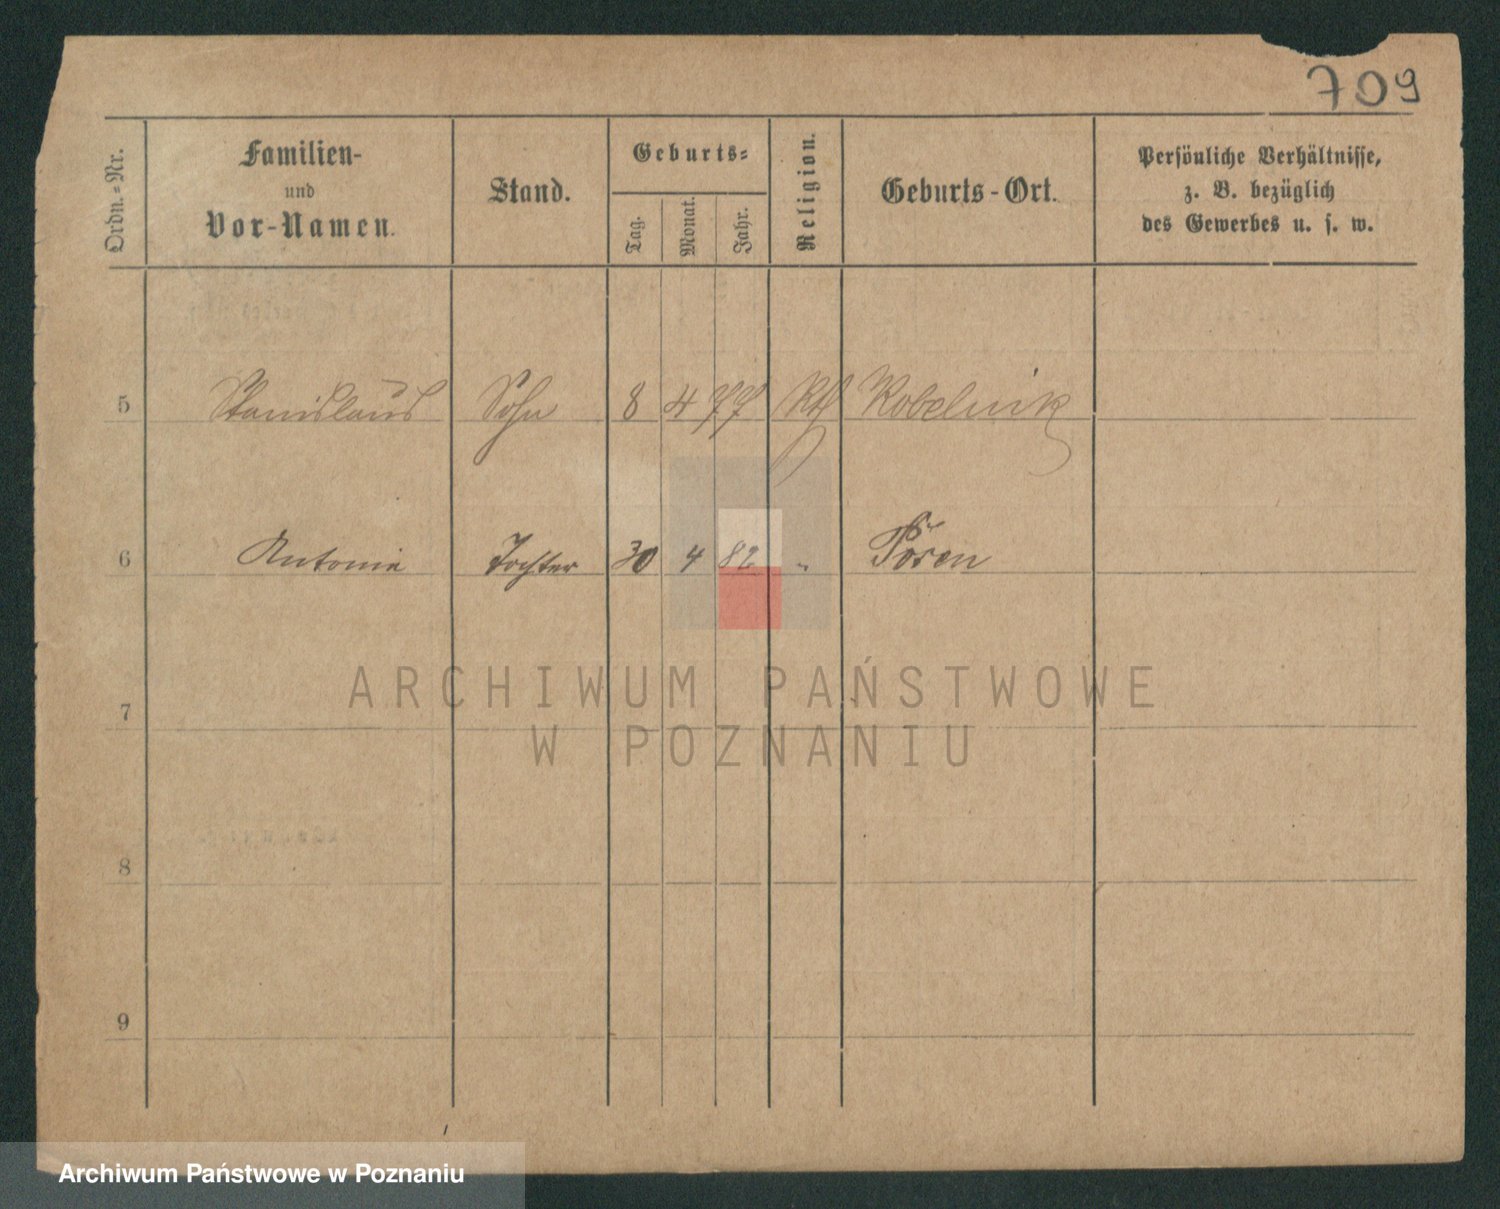 709
Ordn.-Nr.
Familien-
und
Vor-Namen.
Stand.
Geburts-
Tag.
Monat.
Jahr.
Religion.
Geburts-Ort.
Persönliche Verhältnisse,
z. B. bezüglich
des Gewerbes u. s. w.
5 Stanislaus Sohn 8 4 77 Kth Kobelnik
6 Antonie Tochter 30 4 82 " Posen
7
8
9
ARCHIWUM PAŃSTWOWE
W POZNANIU
Archiwum Państwowe w Poznaniu